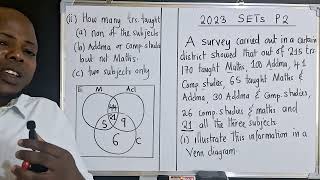 (ii) How many trs. taught
(a) non of the subjects
(b) Addma or Comp studies
but not Maths.
(c) two subjects only
E
M
Ad
5
9
6
C
2023 SETs P2
A survey carried out in a certain
district showed that out of 215 trs
170 taught Maths, 100 Addma, 41
Comp. studies, 65 taught Maths &
Addma, 30 Addma & Comp. studies,
26 comp. studies & maths and
21 all the three subjects
(i) illustrate this information in a
Venn diagram.